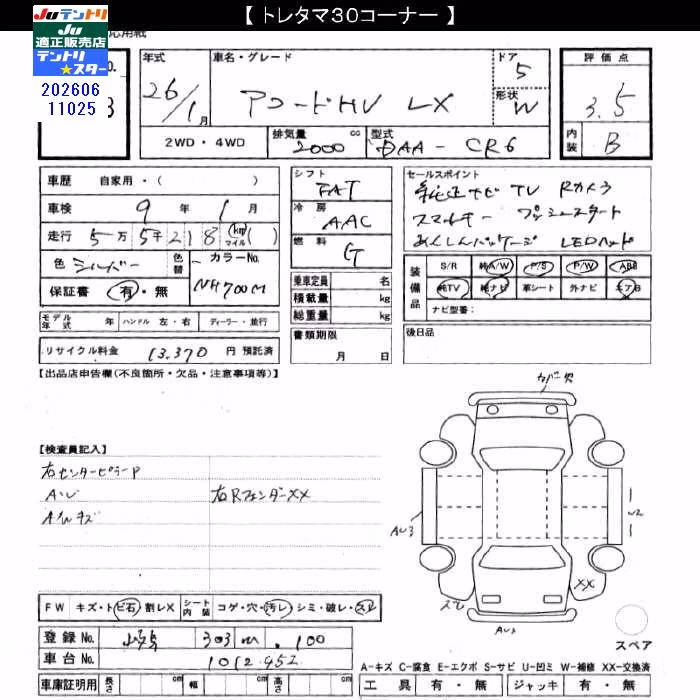 【 トレタマ30コーナー 】
Juテントリ
Ju
適正販売店
テントリ
★スター
202606
11025
応用紙
No.
3
年式 26/1月
車名・グレード アコードHV LX
ドア 5
形状 W
評価点 3.5
内装 B
2WD・4WD 排気量 2000 cc 型式 DAA-CR6
車歴 自家用・( )
車検 9 年 1 月
走行 5万 5千 2 1 8 (km マイル) ( )
色 シルバー 色替 カラーNo. NH700M
保証書 有・無
シフト FAT
冷房 AAC
燃料 G
乗車定員 名
積載量 kg
総重量 kg
セールスポイント
純正ナビ TV Rカメラ
スマートキー プッシュスタート
あんしんパッケージ LEDヘッド
装備品 S/R 純A/W P/S P/W ABS
純TV 純ナビ 革シート 外ナビ エアB
ナビ型番:
モデル年式 年 ハンドル 左・右 ディーラー・並行
リサイクル料金 13,370 円 預託済
書類期限
月 日
後日品
【出品店申告欄(不良箇所・欠品・注意事項等)】
カバー欠
【検査員記入】
右センターピラーP
AU
右Rフェンダー XX
A/Wキズ
AU3
U2
XX
AU2
FW キズ・トビ石・割レX シート内装 コゲ・穴・汚レ・シミ・破レ・スレ
登録No. 303 100
車台No. 1012952
スペア
A-キズ C-腐食 E-エクボ S-サビ U-凹ミ W-補修 XX-交換済
車庫証明用 長さ cm 幅 cm 高さ cm
工具 有・無 ジャッキ 有・無